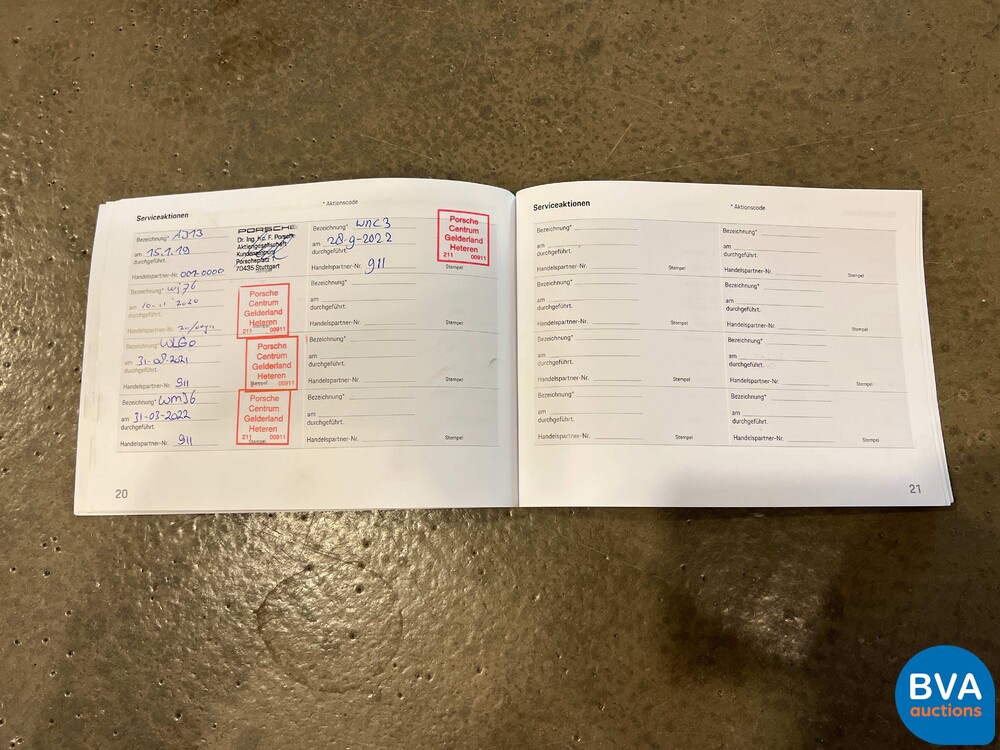 Serviceaktionen
* Aktionscode
Bezeichnung* AJ13
am 15.1.19
durchgeführt.
Handelspartner-Nr. 001-0000
PORSCHE
Dr. Ing. h.c. F. Porsche
Aktiengesellschaft
Porscheplatz 1
70435 Stuttgart
Bezeichnung* wj76
am 10-11 2020
durchgeführt.
Handelspartner-Nr.
Porsche
Centrum
Gelderland
Heteren
211 00911
Stempel
Bezeichnung* WLG0
am 31-08-2021
durchgeführt.
Handelspartner-Nr. 911
Porsche
Centrum
Gelderland
Heteren
Stempel 00911
Bezeichnung* WMJ6
am 31-03-2022
durchgeführt.
Handelspartner-Nr. 911
Porsche
Centrum
Gelderland
Heteren
211 00911
Stempel
Bezeichnung* WNC3
am 28-9-2022
durchgeführt.
Handelspartner-Nr. 911
Porsche
Centrum
Gelderland
Heteren
211 00911
Stempel
Bezeichnung*
am
durchgeführt.
Handelspartner-Nr. Stempel
Bezeichnung*
am
durchgeführt.
Handelspartner-Nr. Stempel
Bezeichnung*
am
durchgeführt.
Handelspartner-Nr. Stempel
20
Serviceaktionen
* Aktionscode
Bezeichnung*
am
durchgeführt.
Handelspartner-Nr. Stempel
Bezeichnung*
am
durchgeführt.
Handelspartner-Nr. Stempel
Bezeichnung*
am
durchgeführt.
Handelspartner-Nr. Stempel
Bezeichnung*
am
durchgeführt.
Handelspartner-Nr. Stempel
Bezeichnung*
am
durchgeführt.
Handelspartner-Nr. Stempel
Bezeichnung*
am
durchgeführt.
Handelspartner-Nr. Stempel
Bezeichnung*
am
durchgeführt.
Handelspartner-Nr. Stempel
Bezeichnung*
am
durchgeführt.
Handelspartner-Nr. Stempel
21
BVA
auctions